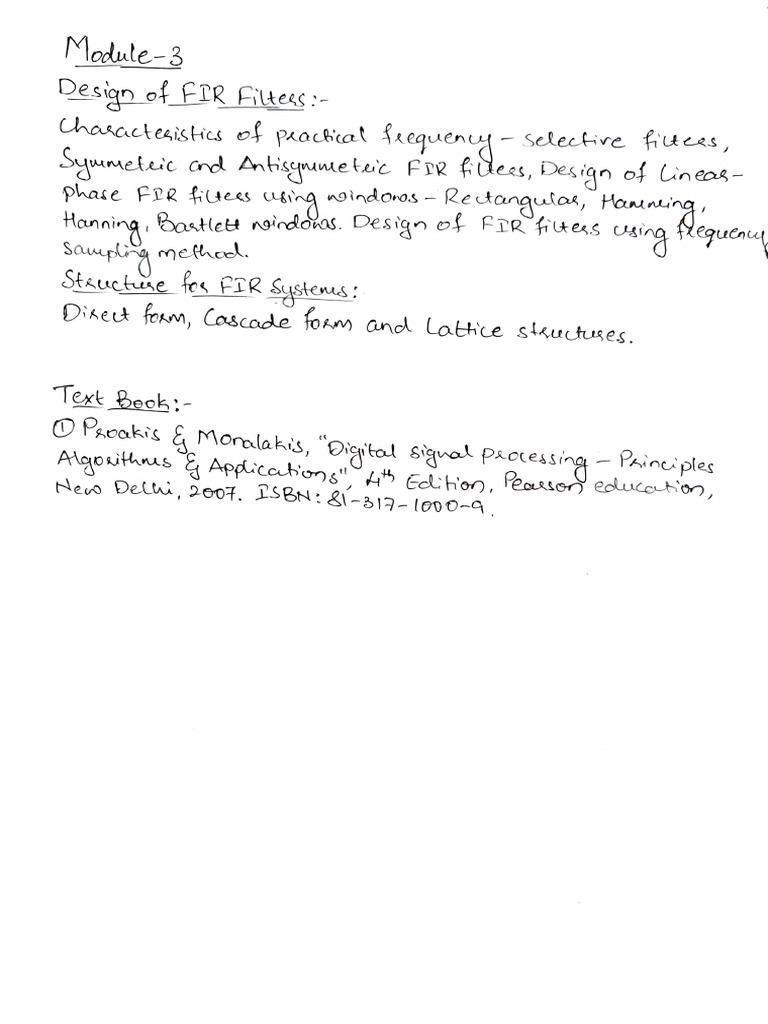 Module-3
Design of FIR Filters:-
Characteristics of practical frequency - selective filters,
Symmetric and Antisymmetric FIR filters, Design of Linear-
phase FIR filters using windows - Rectangular, Hamming,
Hanning, Bartlett windows. Design of FIR filters using frequency
sampling method.
Structure for FIR Systems:
Direct form, Cascade form and Lattice structures.
Text Book:-
① Proakis & Monalakis, "Digital signal processing - Principles
Algorithms & Applications", 4th Edition, Pearson education,
New Delhi, 2007. ISBN: 81-317-1000-9.